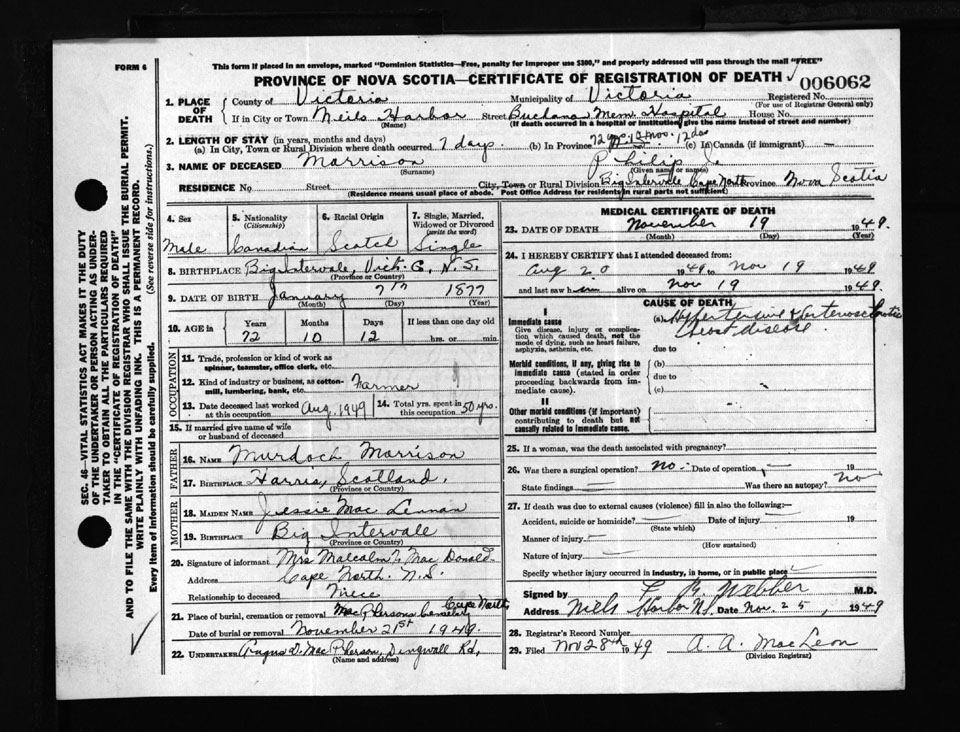 FORM 6
This form if placed in an envelope, marked "Dominion Statistics—Free, penalty for improper use $300," and properly addressed will pass through the mail "FREE"
PROVINCE OF NOVA SCOTIA—CERTIFICATE OF REGISTRATION OF DEATH
006062
1. PLACE OF DEATH
County of Victoria Municipality of Victoria Registered No.
(For use of Registrar General only)
If in City or Town Neils Harbor Street Buchanan Mem. Hospital House No.
(Name) (If death occurred in a hospital or institution give name instead of street and number)
2. LENGTH OF STAY (in years, months and days)
(a) In City, Town or Rural Division where death occurred 7 days. (b) In Province 72 yrs. 10 mos. 12 das (c) In Canada (if immigrant) —
3. NAME OF DECEASED Morrison Philip J.
(Surname) (Given name or names)
RESIDENCE No Street City, Town or Rural Division Big Intervale Cape North Province Nova Scotia
(Residence means usual place of abode. Post Office Address for residents in rural parts not sufficient)
4. Sex
Male
5. Nationality
(Citizenship)
Canadian
6. Racial Origin
Scotch
7. Single, Married, Widowed or Divorced
(write the word)
Single
8. BIRTHPLACE Big Intervale, Vict. C, N.S.
(Province or Country)
9. DATE OF BIRTH January 7th 1877
(Month) (Day) (Year)
10. AGE in
Years Months Days If less than one day old
72 10 12 hrs. or min.
OCCUPATION
11. Trade, profession or kind of work as spinner, teamster, office clerk, etc.
12. Kind of industry or business, as cotton-mill, lumbering, bank, etc. Farmer
13. Date deceased last worked at this occupation Aug. 1949 14. Total yrs. spent in this occupation 50 yrs.
15. If married give name of wife or husband of deceased
FATHER
16. NAME Murdoch Morrison
17. BIRTHPLACE Harris, Scotland.
(Province or Country)
MOTHER
18. MAIDEN NAME Jessie Mac Lennan
19. BIRTHPLACE Big Intervale
(Province or Country)
20. Signature of informant Mrs Malcolm Mac Donald
Address Cape North. N.S.
Relationship to deceased Niece
21. Place of burial, cremation or removal MacPhersons Cemetery Cape North
Date of burial or removal November 21st 1949.
22. UNDERTAKER Angus D. MacPherson, Dingwall Rd,
(Name and address)
MEDICAL CERTIFICATE OF DEATH
23. DATE OF DEATH November 19 1949.
(Month) (Day)
24. I HEREBY CERTIFY that I attended deceased from:
Aug 20 1949 to Nov 19 1949
and last saw him alive on Nov 19 1949.
CAUSE OF DEATH
I
Immediate cause
Give disease, injury or complication which caused death, not the mode of dying, such as heart failure, asphyxia, asthenia, etc.
(a) Hypertensive & Arteriosclerotic
heart disease
due to
Morbid conditions, if any, giving rise to immediate cause (stated in order proceeding backwards from immediate cause).
(b)
due to
(c)
II
Other morbid conditions (if important) contributing to death but not causally related to immediate cause.
25. If a woman, was the death associated with pregnancy?
26. Was there a surgical operation? no - Date of operation — 19
State findings — Was there an autopsy? no
27. If death was due to external causes (violence) fill in also the following:—
Accident, suicide or homicide? — Date of injury — 19
(State which)
Manner of injury —
(How sustained)
Nature of injury —
Specify whether injury occurred in industry, in home, or in public place —
Signed by Webber M.D.
Address Neils Harbor N.S. Date Nov. 25, 1949
28. Registrar's Record Number
29. Filed Nov 28th 1949 A. A. MacLeon
(Division Registrar)
SEC. 46—VITAL STATISTICS ACT MAKES IT THE DUTY
OF THE UNDERTAKER OR PERSON ACTING AS UNDER-
TAKER TO OBTAIN ALL THE PARTICULARS REQUIRED
IN THE "CERTIFICATE OF REGISTRATION OF DEATH"
AND TO FILE THE SAME WITH THE DIVISION REGISTRAR WHO SHALL ISSUE THE BURIAL PERMIT.
WRITE PLAINLY WITH UNFADING INK. THIS IS A PERMANENT RECORD.
Every item of information should be carefully supplied. (See reverse side for instructions.)